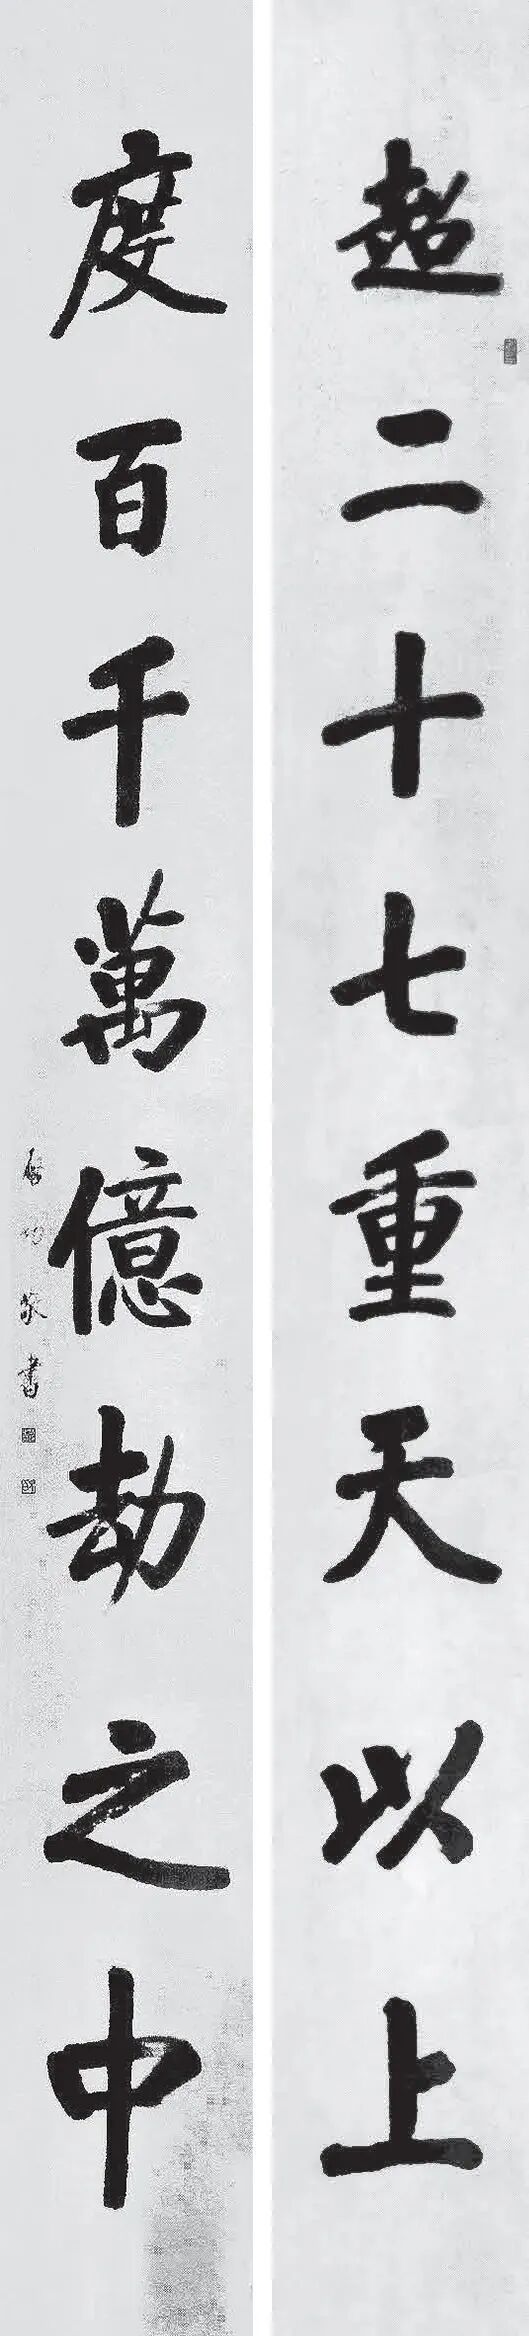 超二十七重天以上
度百千萬億劫之中
启功敬書